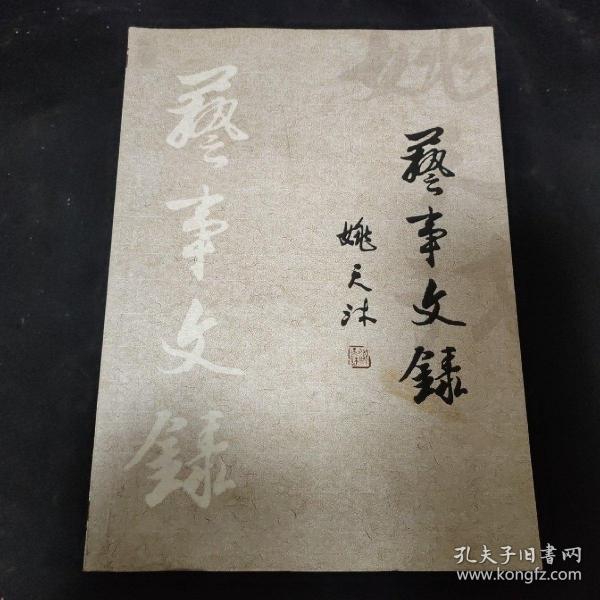 藝事文録
姚天沐
藝事文録
姚
孔夫子旧書网
www.kongfz.com